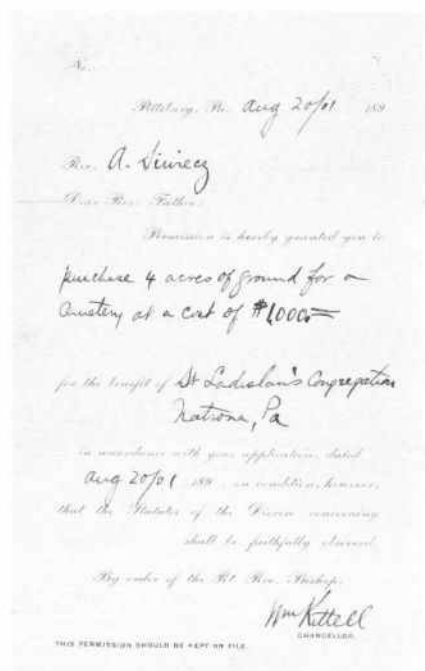 No.
Pittsburg, Pa. Aug 20/01 189
Rev. A. Siwiecz
Dear Rev. Father,
Permission is hereby granted you to
purchase 4 acres of ground for a
Cemetery at a cost of $1,000=
for the benefit of St Ladislau's Congregation
Natrona, Pa
in accordance with your application, dated
Aug 20/01 189 , on condition, however,
that the Statutes of the Diocese concerning
shall be faithfully observed.
By order of the Rt. Rev. Bishop.
Wm Kittell
CHANCELLOR.
THIS PERMISSION SHOULD BE KEPT ON FILE.